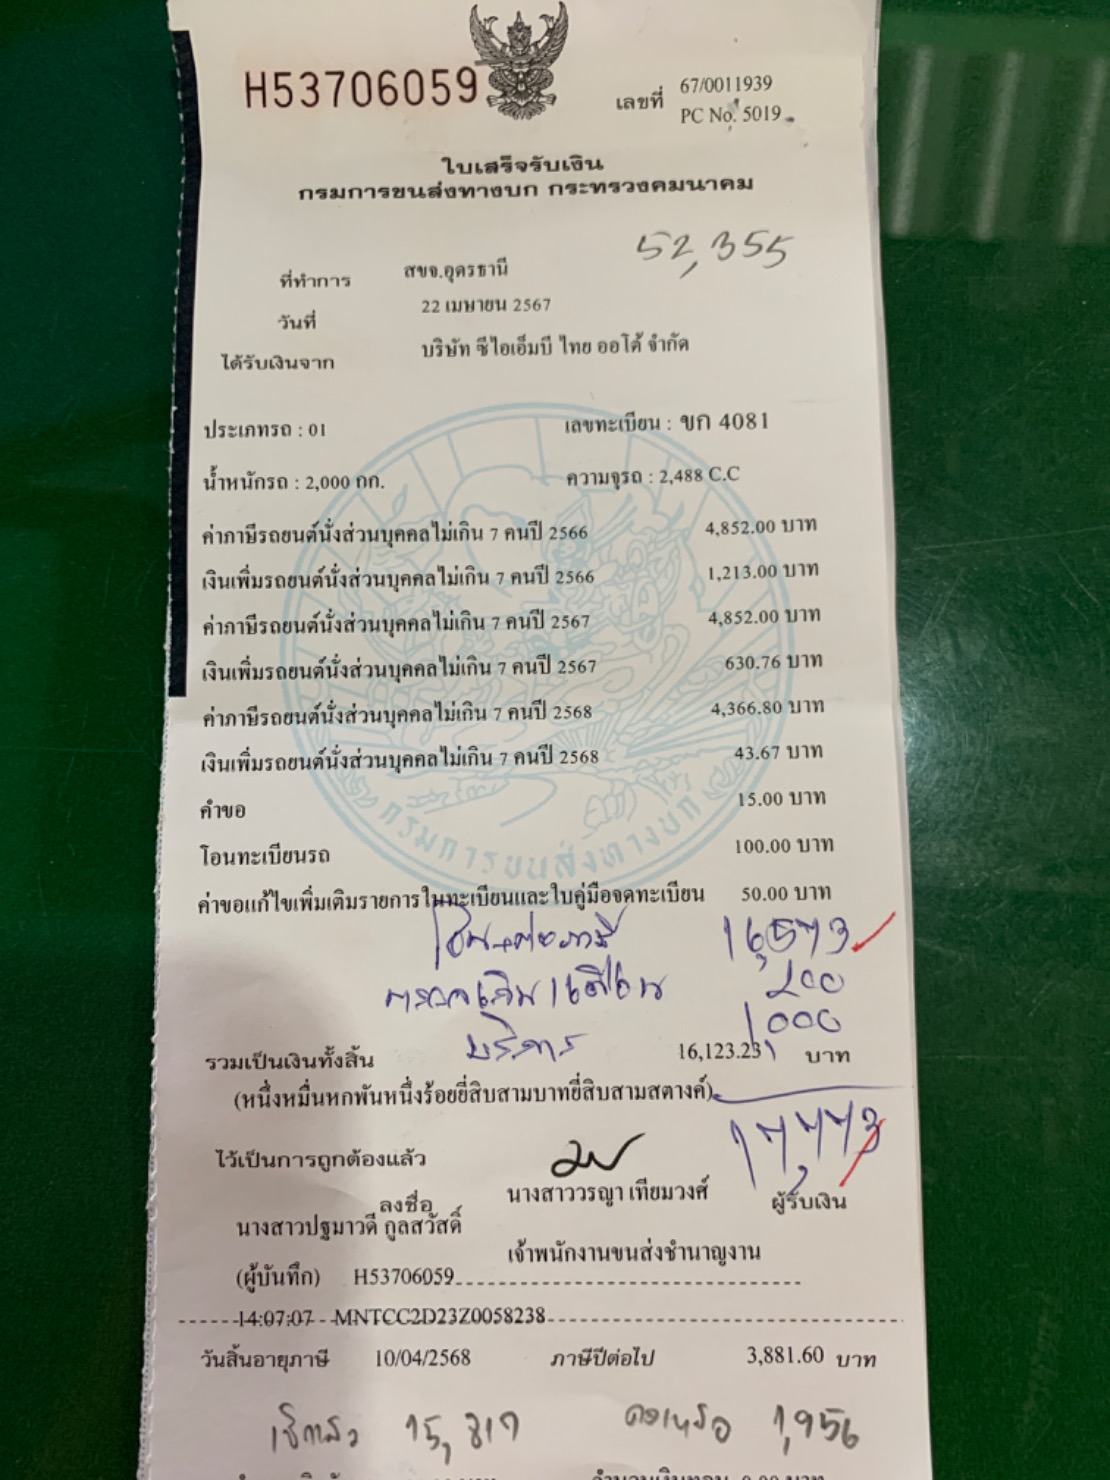 H53706059
เลขที่ 67/0011939
PC No. 5019
ใบเสร็จรับเงิน
กรมการขนส่งทางบก กระทรวงคมนาคม
52,355
ที่ทำการ สขจ.อุดรธานี
วันที่ 22 เมษายน 2567
ได้รับเงินจาก บริษัท ซีไอเอ็มบี ไทย ออโต้ จำกัด
ประเภทรถ : 01 เลขทะเบียน : ขก 4081
น้ำหนักรถ : 2,000 กก. ความจุรถ : 2,488 C.C
ค่าภาษีรถยนต์นั่งส่วนบุคคลไม่เกิน 7 คนปี 2566 4,852.00 บาท
เงินเพิ่มรถยนต์นั่งส่วนบุคคลไม่เกิน 7 คนปี 2566 1,213.00 บาท
ค่าภาษีรถยนต์นั่งส่วนบุคคลไม่เกิน 7 คนปี 2567 4,852.00 บาท
เงินเพิ่มรถยนต์นั่งส่วนบุคคลไม่เกิน 7 คนปี 2567 630.76 บาท
ค่าภาษีรถยนต์นั่งส่วนบุคคลไม่เกิน 7 คนปี 2568 4,366.80 บาท
เงินเพิ่มรถยนต์นั่งส่วนบุคคลไม่เกิน 7 คนปี 2568 43.67 บาท
คำขอ 15.00 บาท
โอนทะเบียนรถ 100.00 บาท
กรมการขนส่งทางบก
ค่าขอแก้ไขเพิ่มเติมรายการในทะเบียนและใบคู่มือจดทะเบียน 50.00 บาท
16,573
200
บริการ 1,000
รวมเป็นเงินทั้งสิ้น 16,123.23 บาท
(หนึ่งหมื่นหกพันหนึ่งร้อยยี่สิบสามบาทยี่สิบสามสตางค์)
17,773
ไว้เป็นการถูกต้องแล้ว
ลงชื่อ นางสาววรญา เทียมวงศ์ ผู้รับเงิน
นางสาวปฐมาวดี กูลสวัสดิ์
เจ้าพนักงานขนส่งชำนาญงาน
(ผู้บันทึก) H53706059
14:07:07 MNTCC2D23Z0058238
วันสิ้นอายุภาษี 10/04/2568 ภาษีปีต่อไป 3,881.60 บาท
เบิกแล้ว 15,817 คงเหลือ 1,956